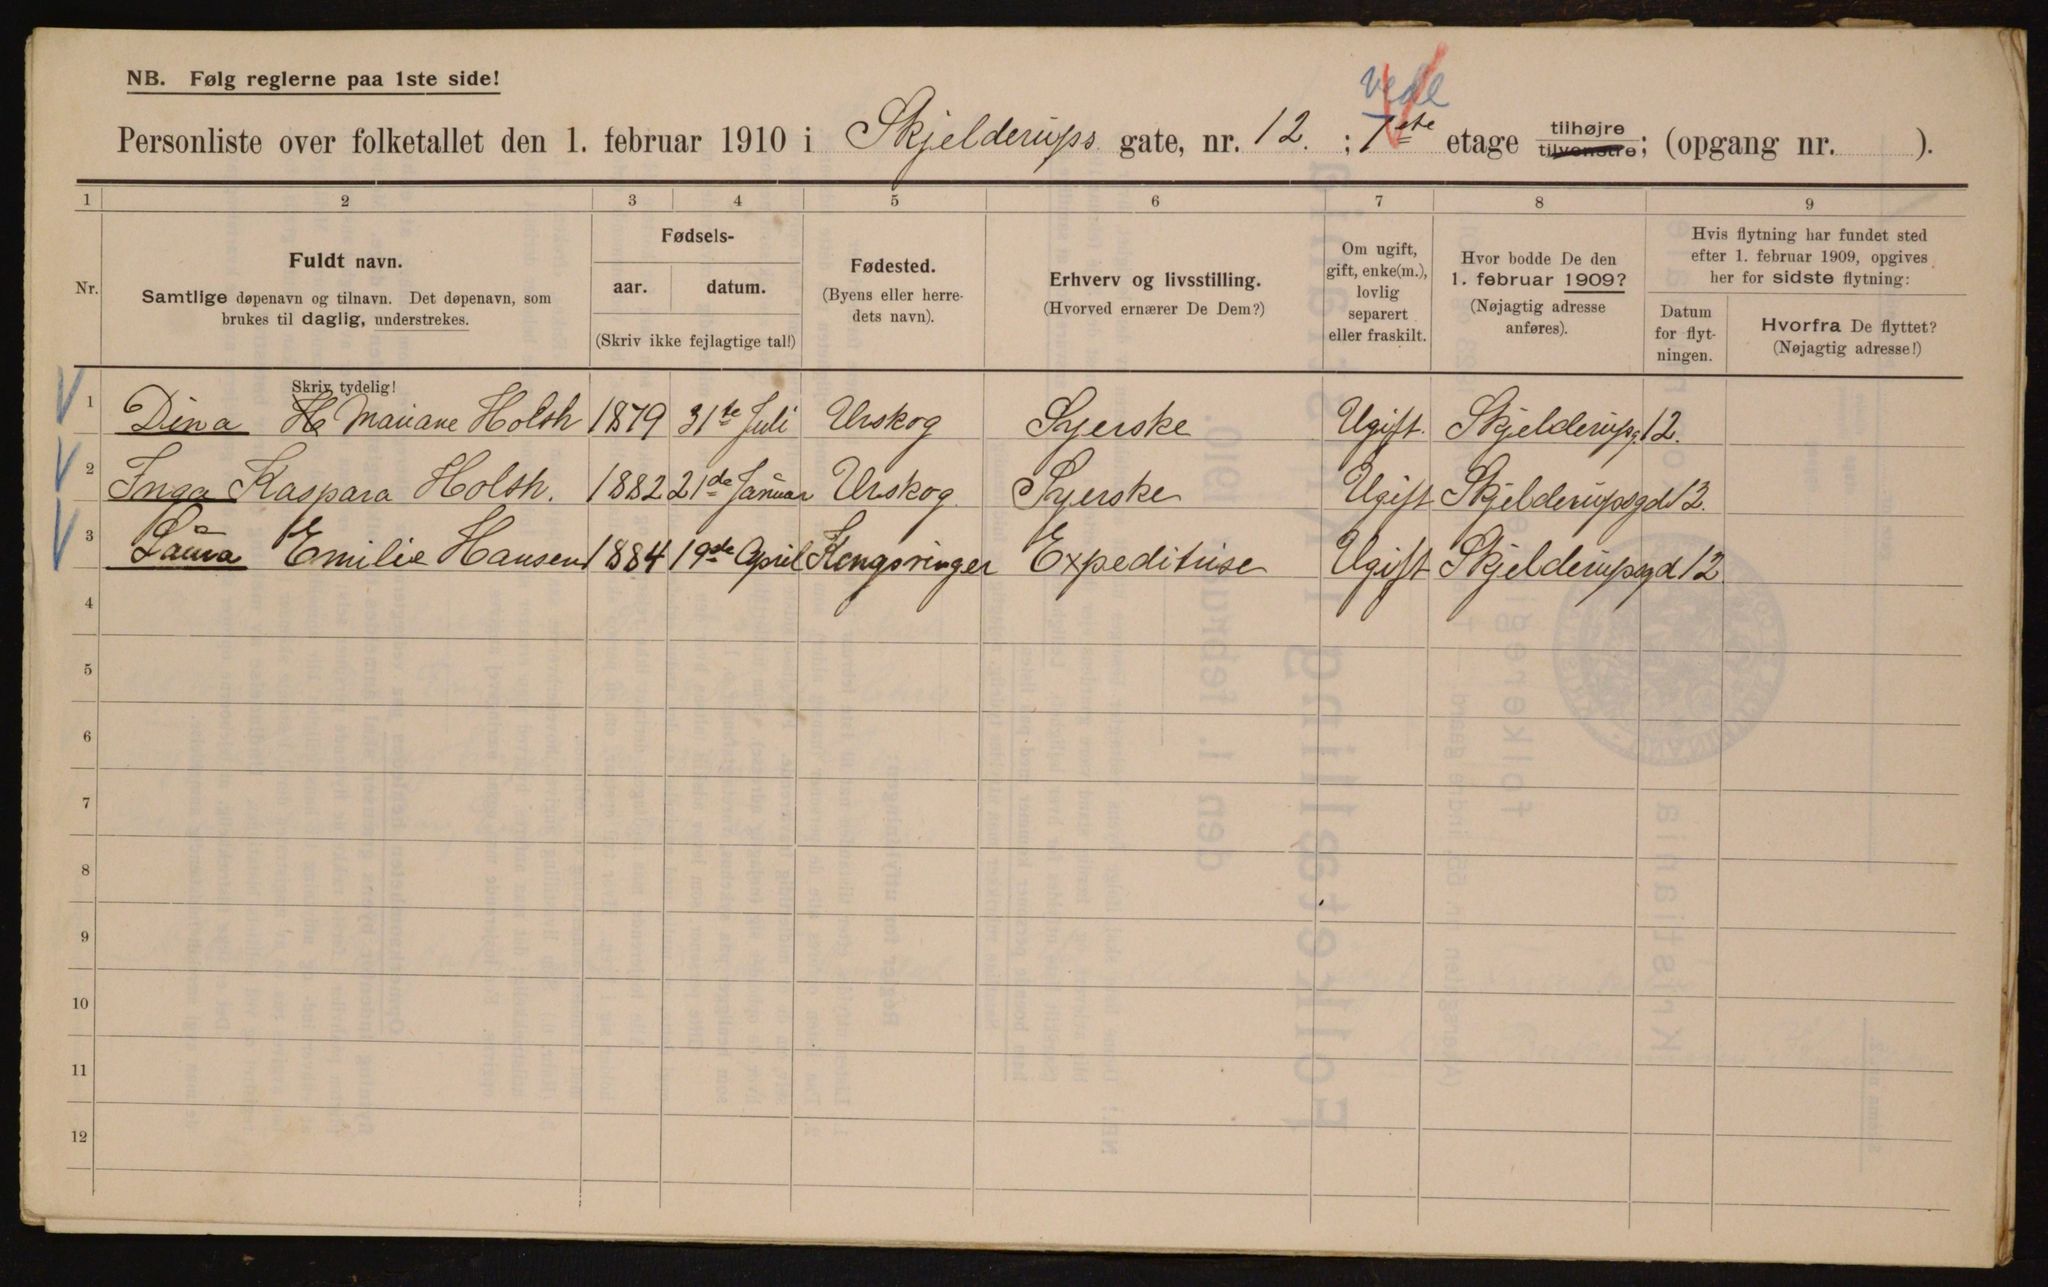 NB. Følg reglerne paa 1ste side!
vede
Personliste over folketallet den 1. februar 1910 i Skjelderups gate, nr. 12. ; 1ste etage tilhøjre tilvenstre; (opgang nr. ).
1 2 3 4 5 6 7 8 9
Nr.
Fuldt navn.
Samtlige døpenavn og tilnavn. Det døpenavn, som
brukes til daglig, understrekes.
Fødsels-
aar. datum.
(Skriv ikke fejlagtige tal!)
Fødested.
(Byens eller herre-
dets navn).
Erhverv og livsstilling.
(Hvorved ernærer De Dem?)
Om ugift,
gift, enke(m.),
lovlig
separert
eller fraskilt.
Hvor bodde De den
1. februar 1909?
(Nøjagtig adresse
anføres).
Hvis flytning har fundet sted
efter 1. februar 1909, opgives
her for sidste flytning:
Datum
for flyt-
ningen.
Hvorfra De flyttet?
(Nøjagtig adresse!)
Skriv tydelig!
1 Dina Mariane Holsh 1879 31te Juli Urskog Syerske Ugift. Skjelderupsg 12.
2 Inga Kaspara Holsh. 1882 21de Januar Urskog Syerske Ugift Skjelderupsgd 12.
3 Laura Emilie Hansen 1884 19de April Kongsvinger Expeditrise Ugift Skjelderupsgd 12
4
5
6
7
8
9
10
11
12